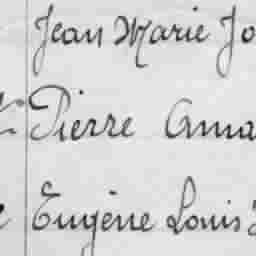 Jean Marie Jo
Pierre Ama
Eugène Louis